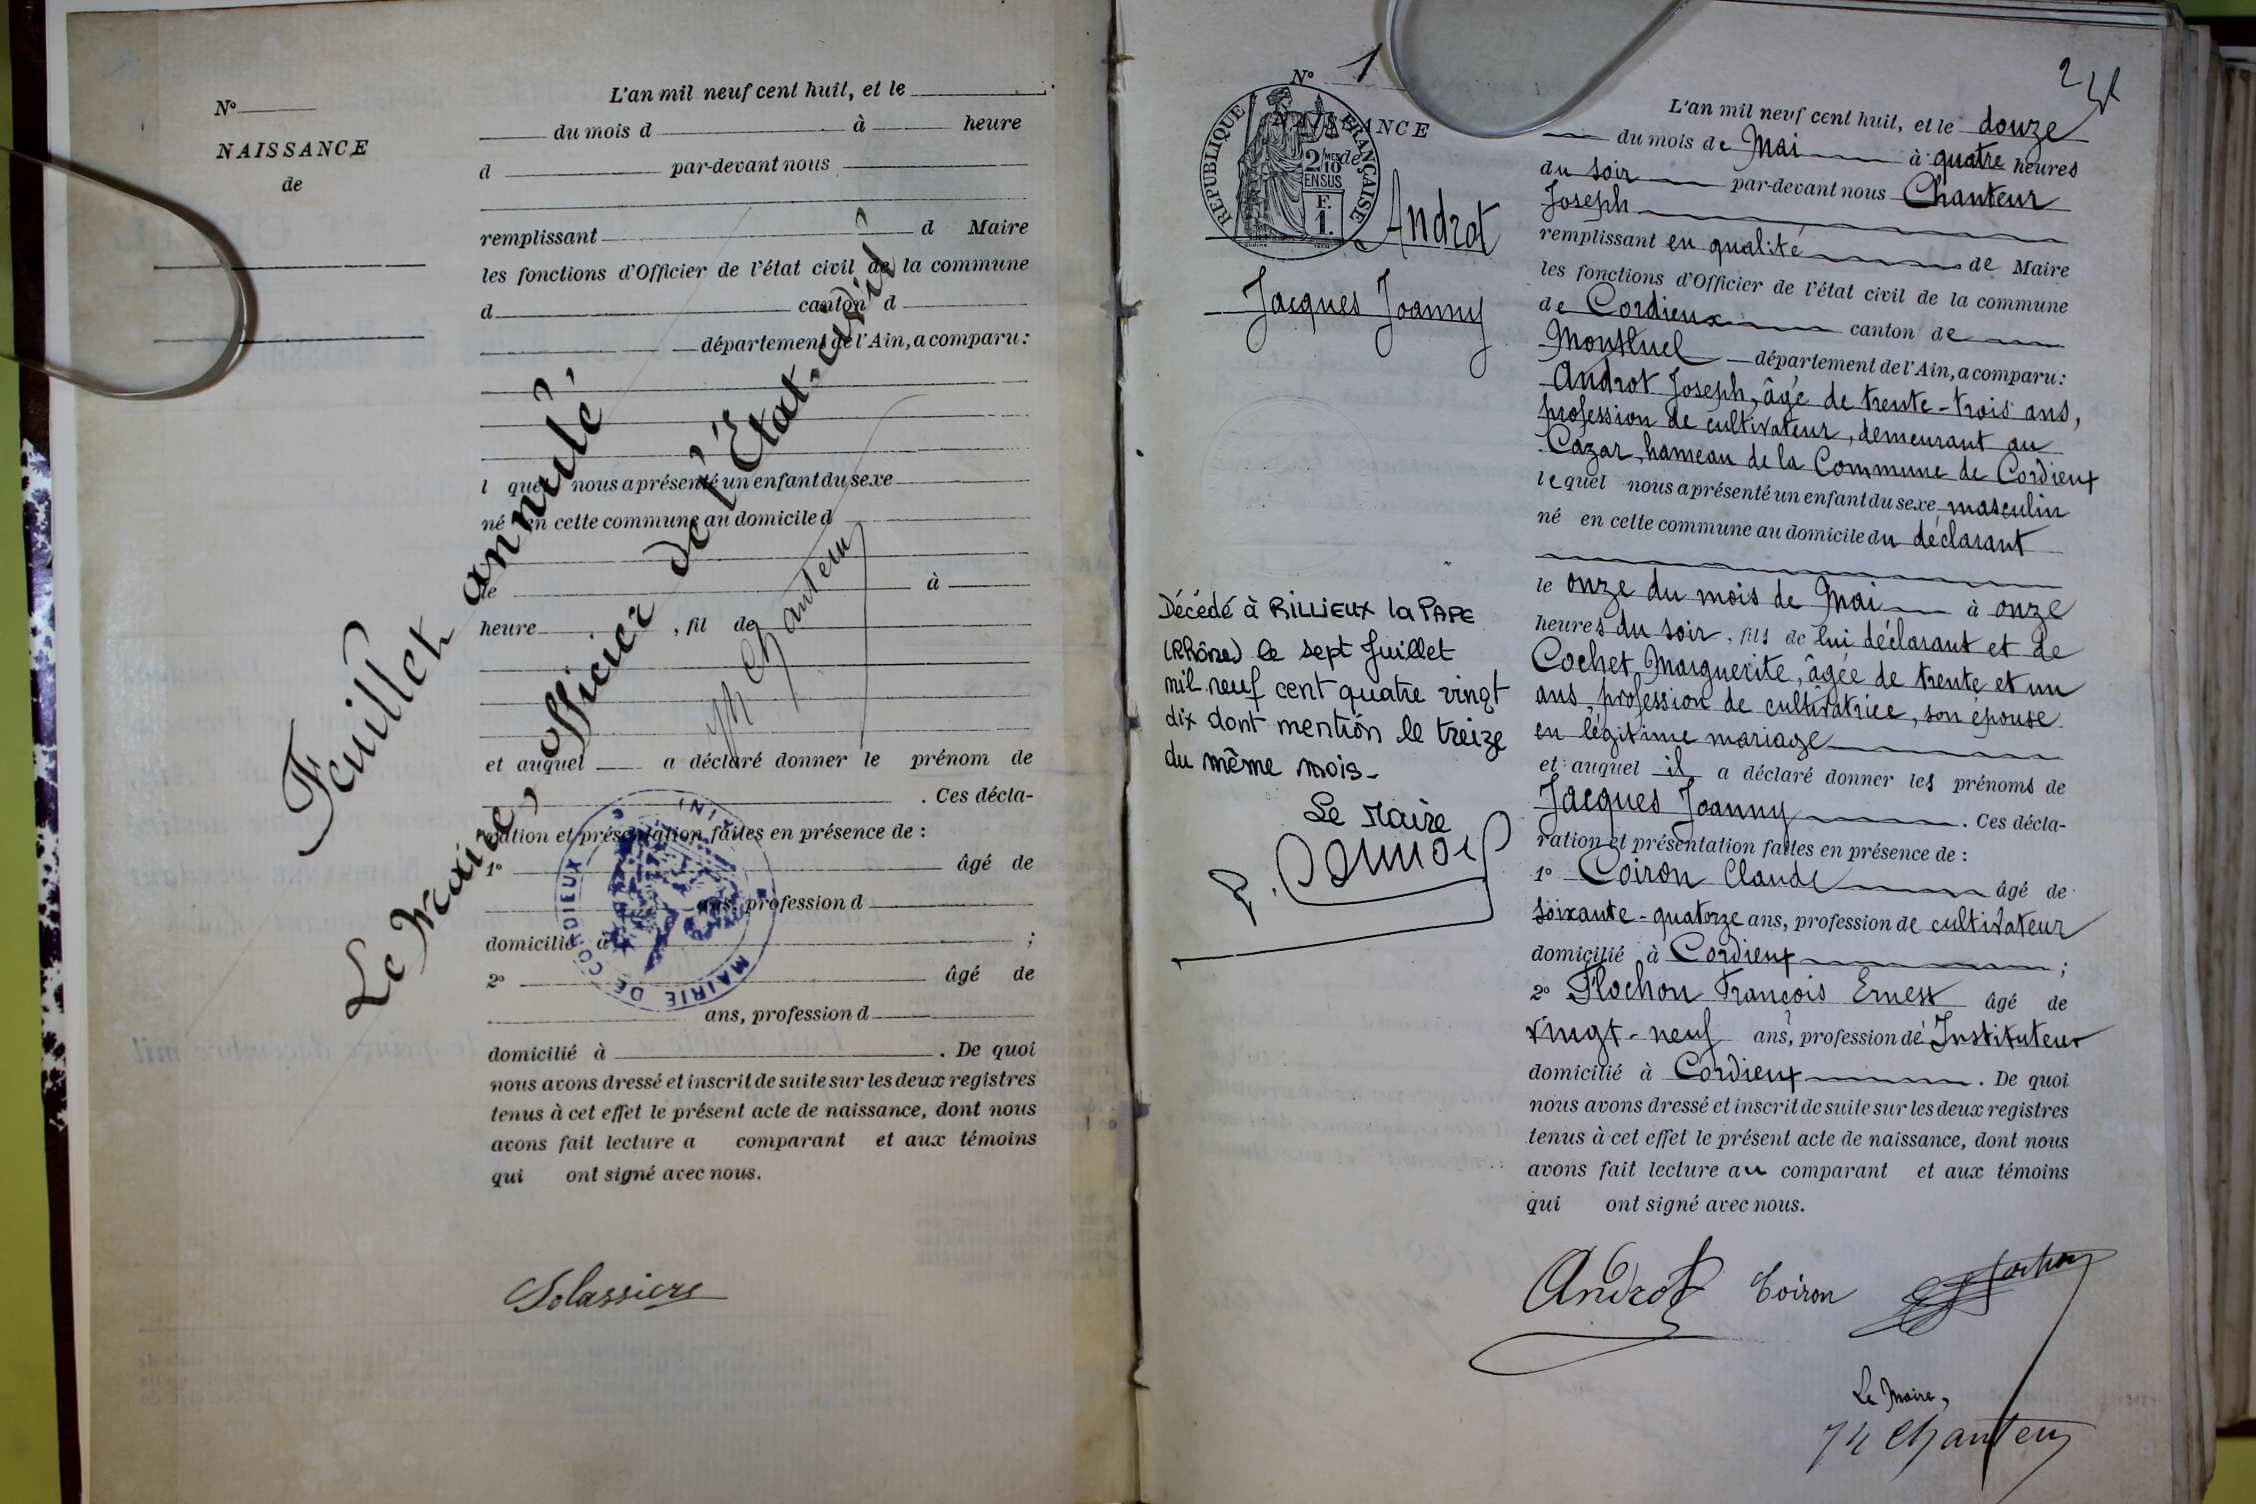 N°
NAISSANCE
de
L'an mil neuf cent huit, et le
du mois d à heure
d par-devant nous
remplissant d Maire
les fonctions d'Officier de l'état civil de la commune
d canton d
département de l'Ain, a comparu :
l quel nous a présenté un enfant du sexe
né en cette commune au domicile d
le à
heure , fil de
et auquel a déclaré donner le prénom de
. Ces décla-
ration et présentation faites en présence de :
1° âgé de
ans, profession d
domicilié à ;
2° âgé de
ans, profession d
domicilié à . De quoi
nous avons dressé et inscrit de suite sur les deux registres
tenus à cet effet le présent acte de naissance, dont nous
avons fait lecture a comparant et aux témoins
qui ont signé avec nous.
Feuillet annulé,
Le Maire, officier de l'État-civil,
Chanteur
MAIRIE DE CORDIEUX
(AIN)
N° 1
NAISSANCE
de
RÉPUBLIQUE FRANÇAISE
2/10 MES
EN SUS
F.
1.
Androt
Jacques Joanny
Décédé à RILLIEUX la PAPE
(Rhône) le sept Juillet
mil neuf cent quatre vingt
dix dont mention le treize
du même mois -
Le Maire
2
L'an mil neuf cent huit, et le douze
du mois de Mai à quatre heures
du soir par-devant nous Chanteur
Joseph
remplissant en qualité de Maire
les fonctions d'Officier de l'état civil de la commune
de Cordieux canton de
Montluel département de l'Ain, a comparu :
Androt Joseph, âgé de trente-trois ans,
profession de cultivateur, demeurant au
Cazar, hameau de la Commune de Cordieux
lequel nous a présenté un enfant du sexe masculin
né en cette commune au domicile du déclarant
le onze du mois de Mai à onze
heures du soir, fils de lui déclarant et de
Cochet Marguerite, âgée de trente et un
ans, profession de cultivatrice, son épouse
en légitime mariage
et auquel il a déclaré donner les prénoms de
Jacques Joanny . Ces décla-
ration et présentation faites en présence de :
1° Coiron Claude âgé de
soixante-quatorze ans, profession de cultivateur
domicilié à Cordieux ;
2° Flochon François Ernest âgé de
vingt-neuf ans, profession de Instituteur
domicilié à Cordieux . De quoi
nous avons dressé et inscrit de suite sur les deux registres
tenus à cet effet le présent acte de naissance, dont nous
avons fait lecture au comparant et aux témoins
qui ont signé avec nous.
Androt Coiron Flochon
Le Maire,
Chanteur